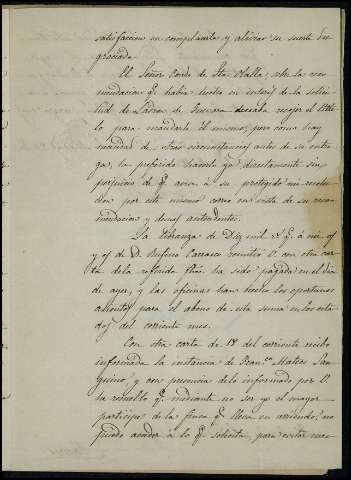 satisfaccion en complacerle y aliviar su suerte des
graciada.
El Señor Conde de Sta. Olalla, vbre la reco
mendacion q. habia hecho en interes de la solici
tud de Ladron de Guevara deseaba recojer el titu
lo para mandarle el mismo; pero como hay
necesidad de otras circunstancias antes de su entre
ga, he preferido hacerlo yo directamente sin
perjuicio de q. avise á su protegido mi resolu
cion por este mismo correo en vista de su reco
mendacion y demas antecedentes.
La libranza de Diez mil r. q. á mi of
y of de D. Rufino Carrasco remitió V. con otra car
ta de la referida fha. ha sido pagada en el dia
de ayer, y las oficinas han hecho los oportunos
asientos para el abono de esta suma en los esta
dos del corriente mes.
Con otra carta de 18 del corriente recibo
informada la instancia de Fran.co Mateos San
guino, y con presencia de lo informado por V.
he resuelto q. mediante no ser yo el mayor
participe de la finca q. lleva en arriendo, no
puedo acceder á lo q. solicita, para evitar recla